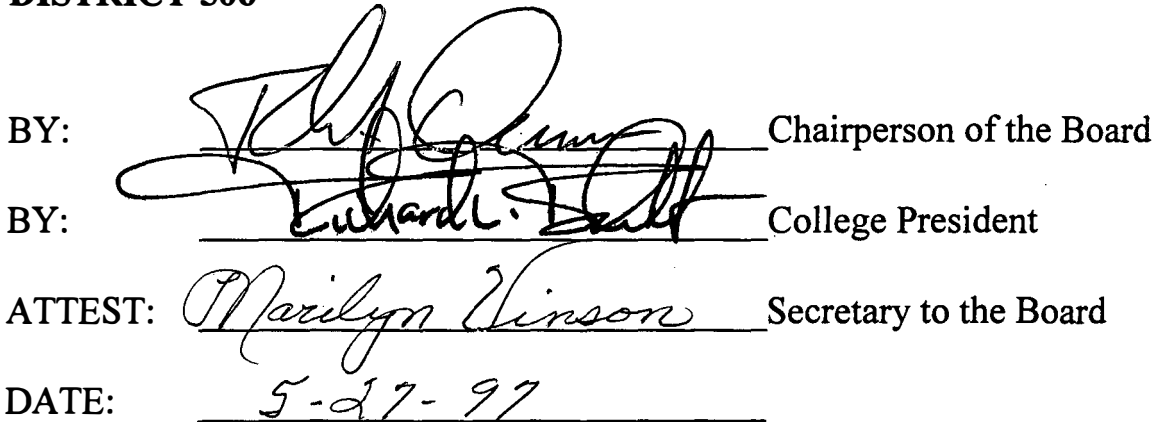 DISTRICT 508
BY: Chairperson of the Board
BY: Richard L. College President
ATTEST: Marilyn Vinson Secretary to the Board
DATE: 5-27-97